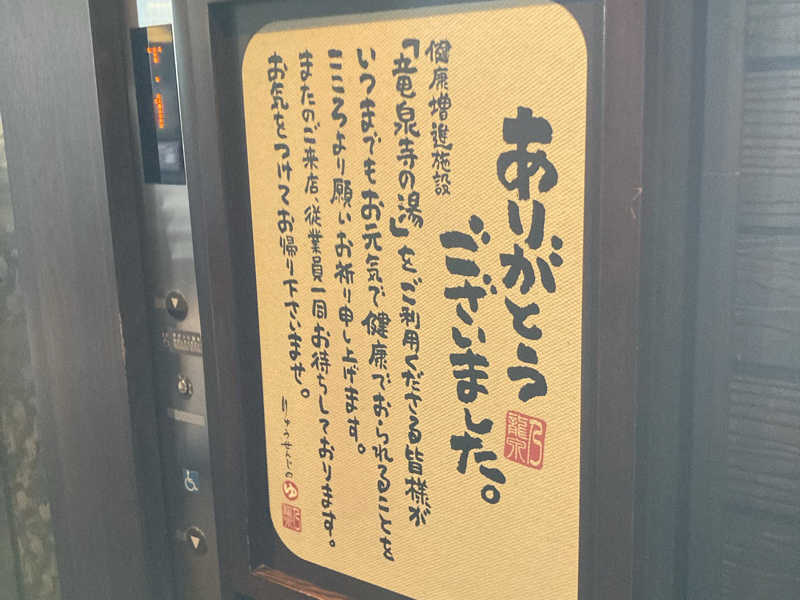 ありがとう
ございました。
健康増進施設
「竜泉寺の湯」をご利用くださる皆様が
いつまでもお元気で健康でおられることを
こころより願いお祈り申し上げます。
またのご来店、従業員一同お待ちしております。
お気をつけてお帰り下さいませ。
りゅうせんじのゆ